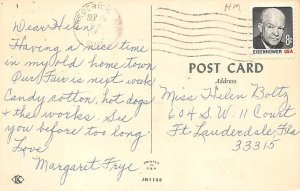 HM
SEP
8c
EISENHOWER USA
POST CARD
Address
Dear Helen,
Having a nice time
in my old home town
Our Fair is next week
Candy cotton, hot dogs
+ the works. See
you before too long.
Love
Margaret Frye
Miss Helen Boltz
604 S. W. 11 Court
Ft. Lauderdale, Fla
33315
K
PRINTED
JB1166